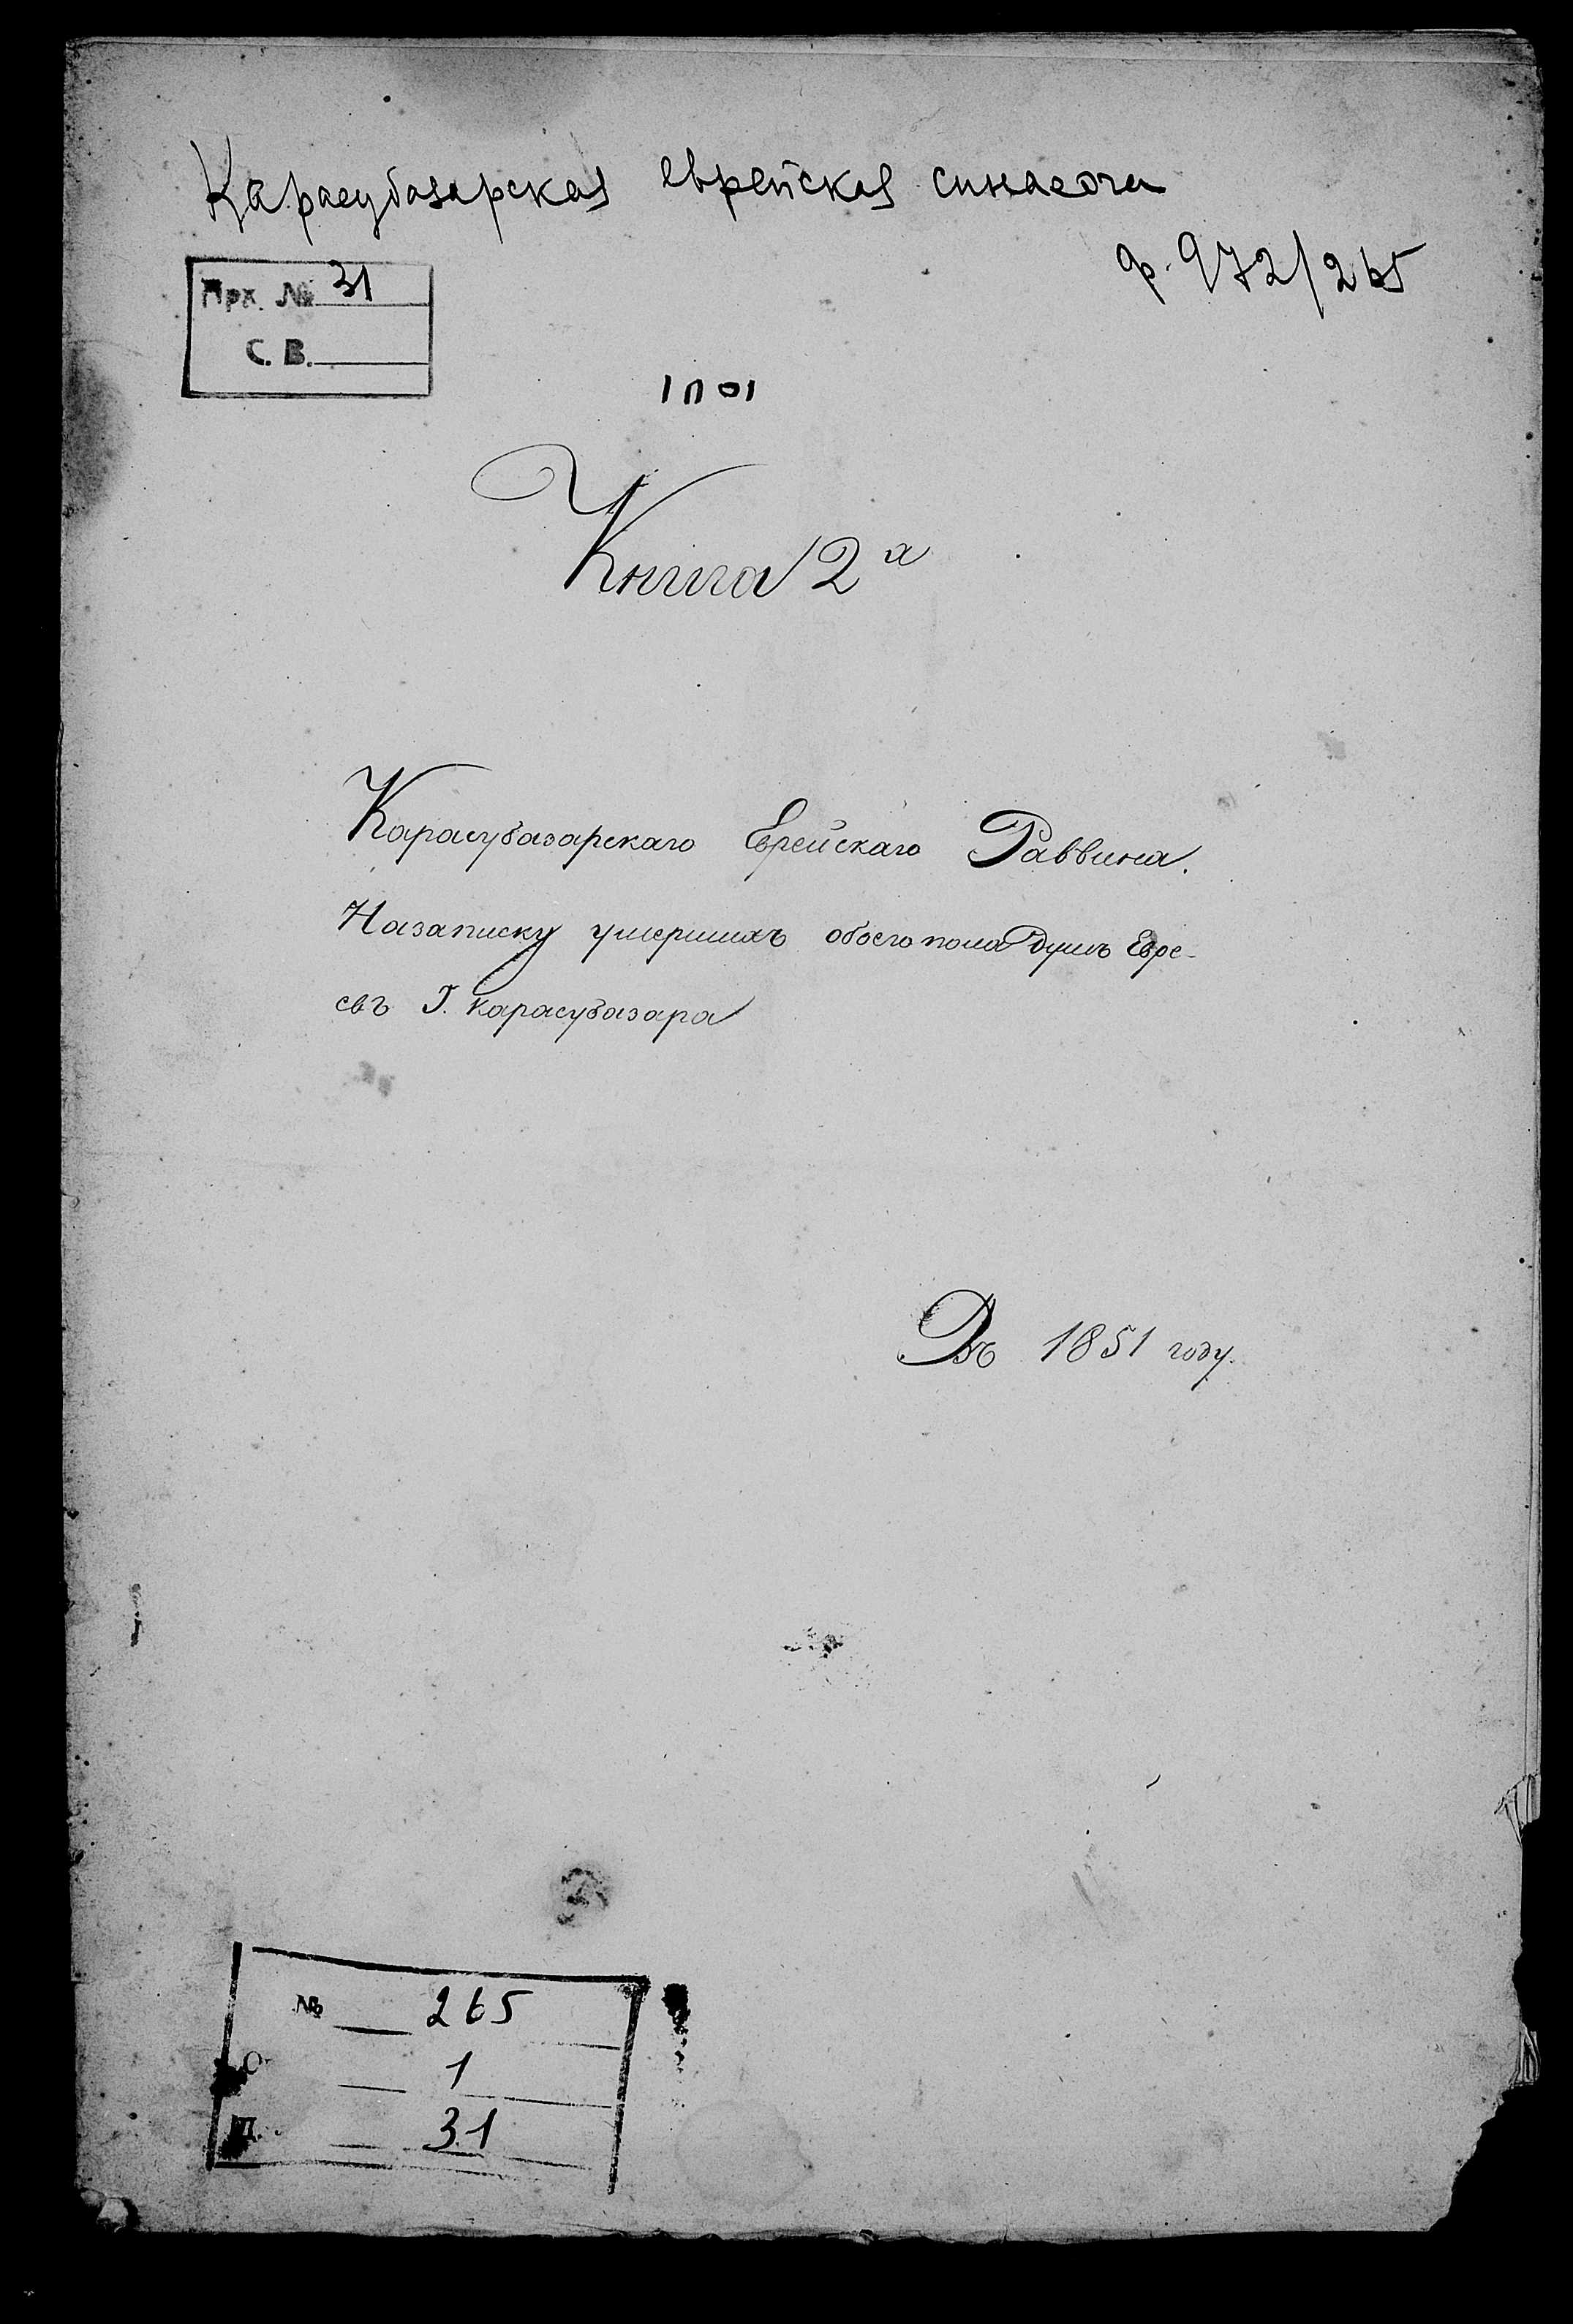 Карасубазарская еврейская синагога
ф. 972/265
Арх. № 31
С. В.
1 п 01
Книга 2а
Карасубазарскаго Еврейскаго Раввина.
Назаписку умершихъ обоего пола душъ Евре-
евъ Г. Карасубазара
Въ 1851 году.
№ 265
О. 1
Д. 31